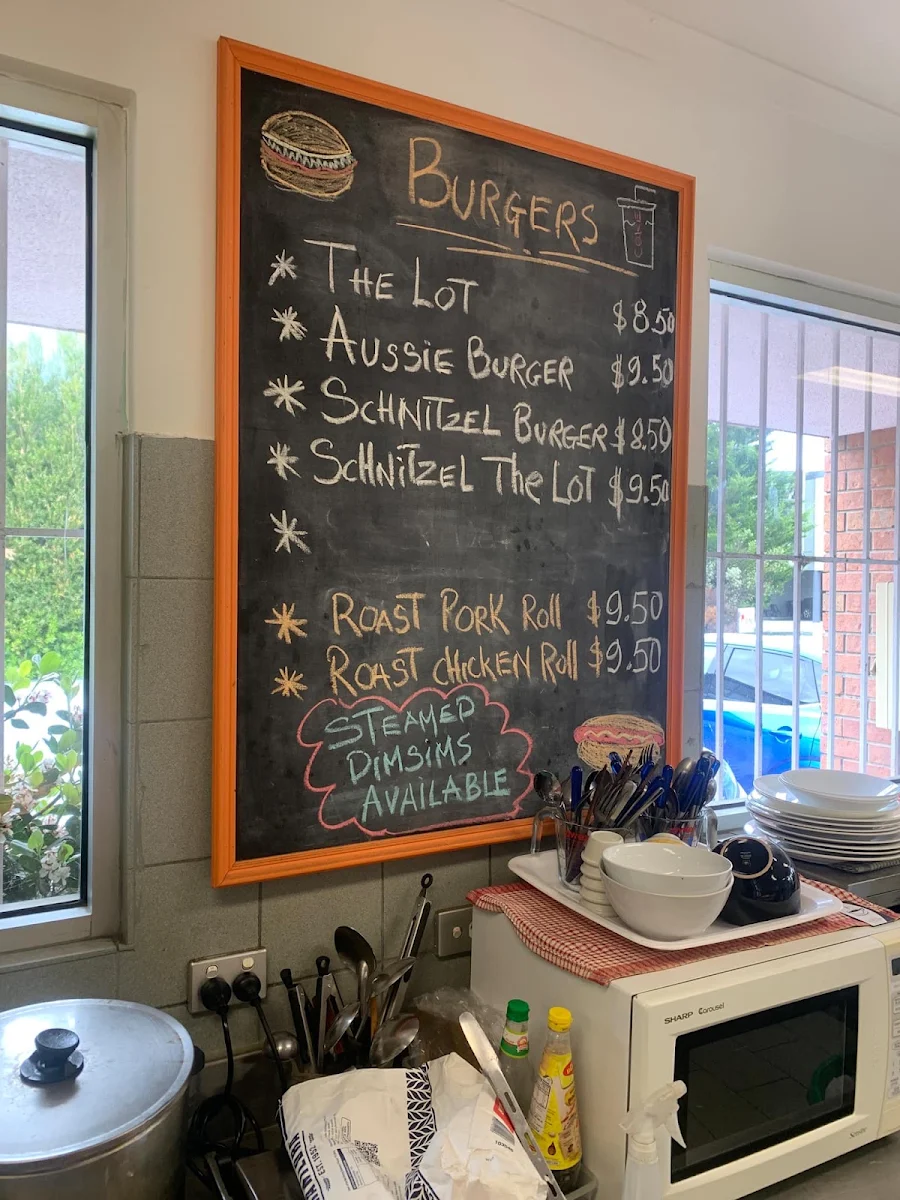 BURGERS
COKE
* THE LOT $8.50
* AUSSIE BURGER $9.50
* SCHNITZEL BURGER $8.50
* SCHNITZEL The LOT $9.50
*
* ROAST PORK Roll $9.50
* ROAST CHICKEN Roll $9.50
STEAMED
DIMSIMS
AVAILABLE
SHARP Carousel